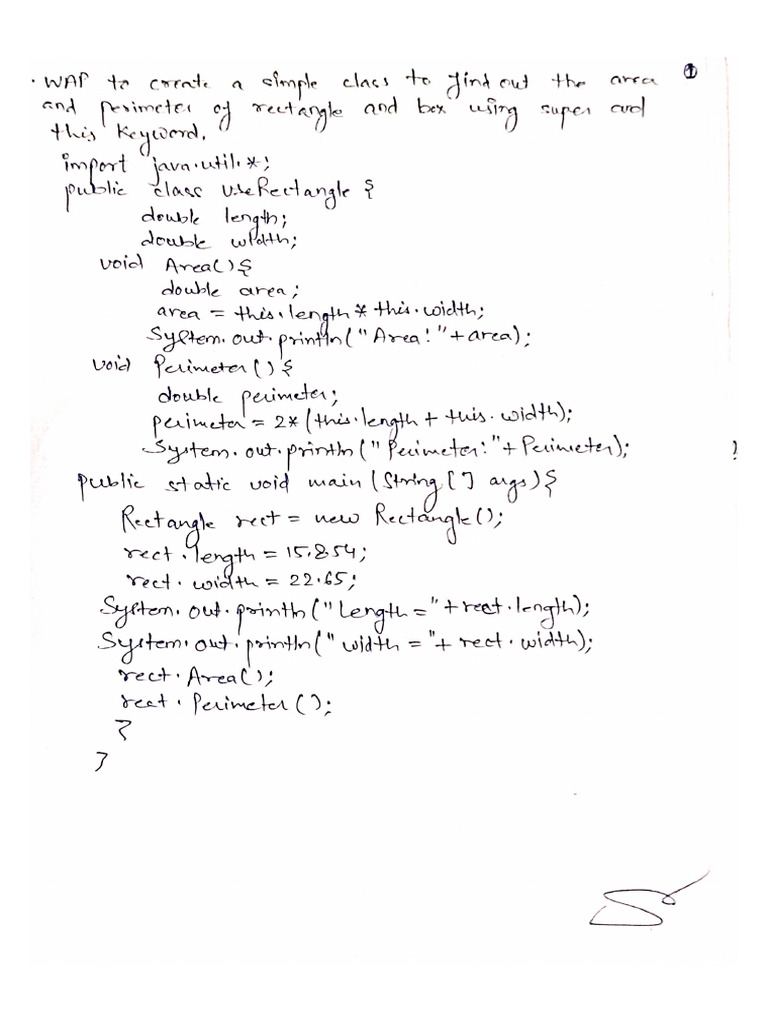 ①
· WAP to create a simple class to find out the area
and perimeter of rectangle and box using super and
this keyword.
import java.util.*;
public class UseRectangle {
double length;
double width;
void Area(){
double area;
area = this.length * this.width;
System.out.println("Area:"+area);
void Perimeter(){
double perimeter;
perimeter = 2*(this.length + this.width);
System.out.println("Perimeter:"+Perimeter); }
public static void main (String [] args){
Rectangle rect = new Rectangle();
rect.length = 15.854;
rect.width = 22.65;
System.out.println("Length = "+rect.length);
System.out.println("width = "+ rect.width);
rect.Area();
rect.Perimeter();
}
}